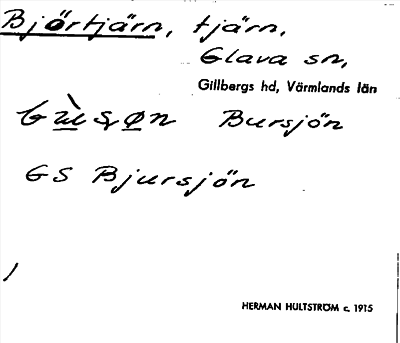 Björtjärn, tjärn,
Glava sn,
Gillbergs hd, Värmlands län
Bursjön
GS Bjursjön
/
HERMAN HULTSTRÖM c. 1915